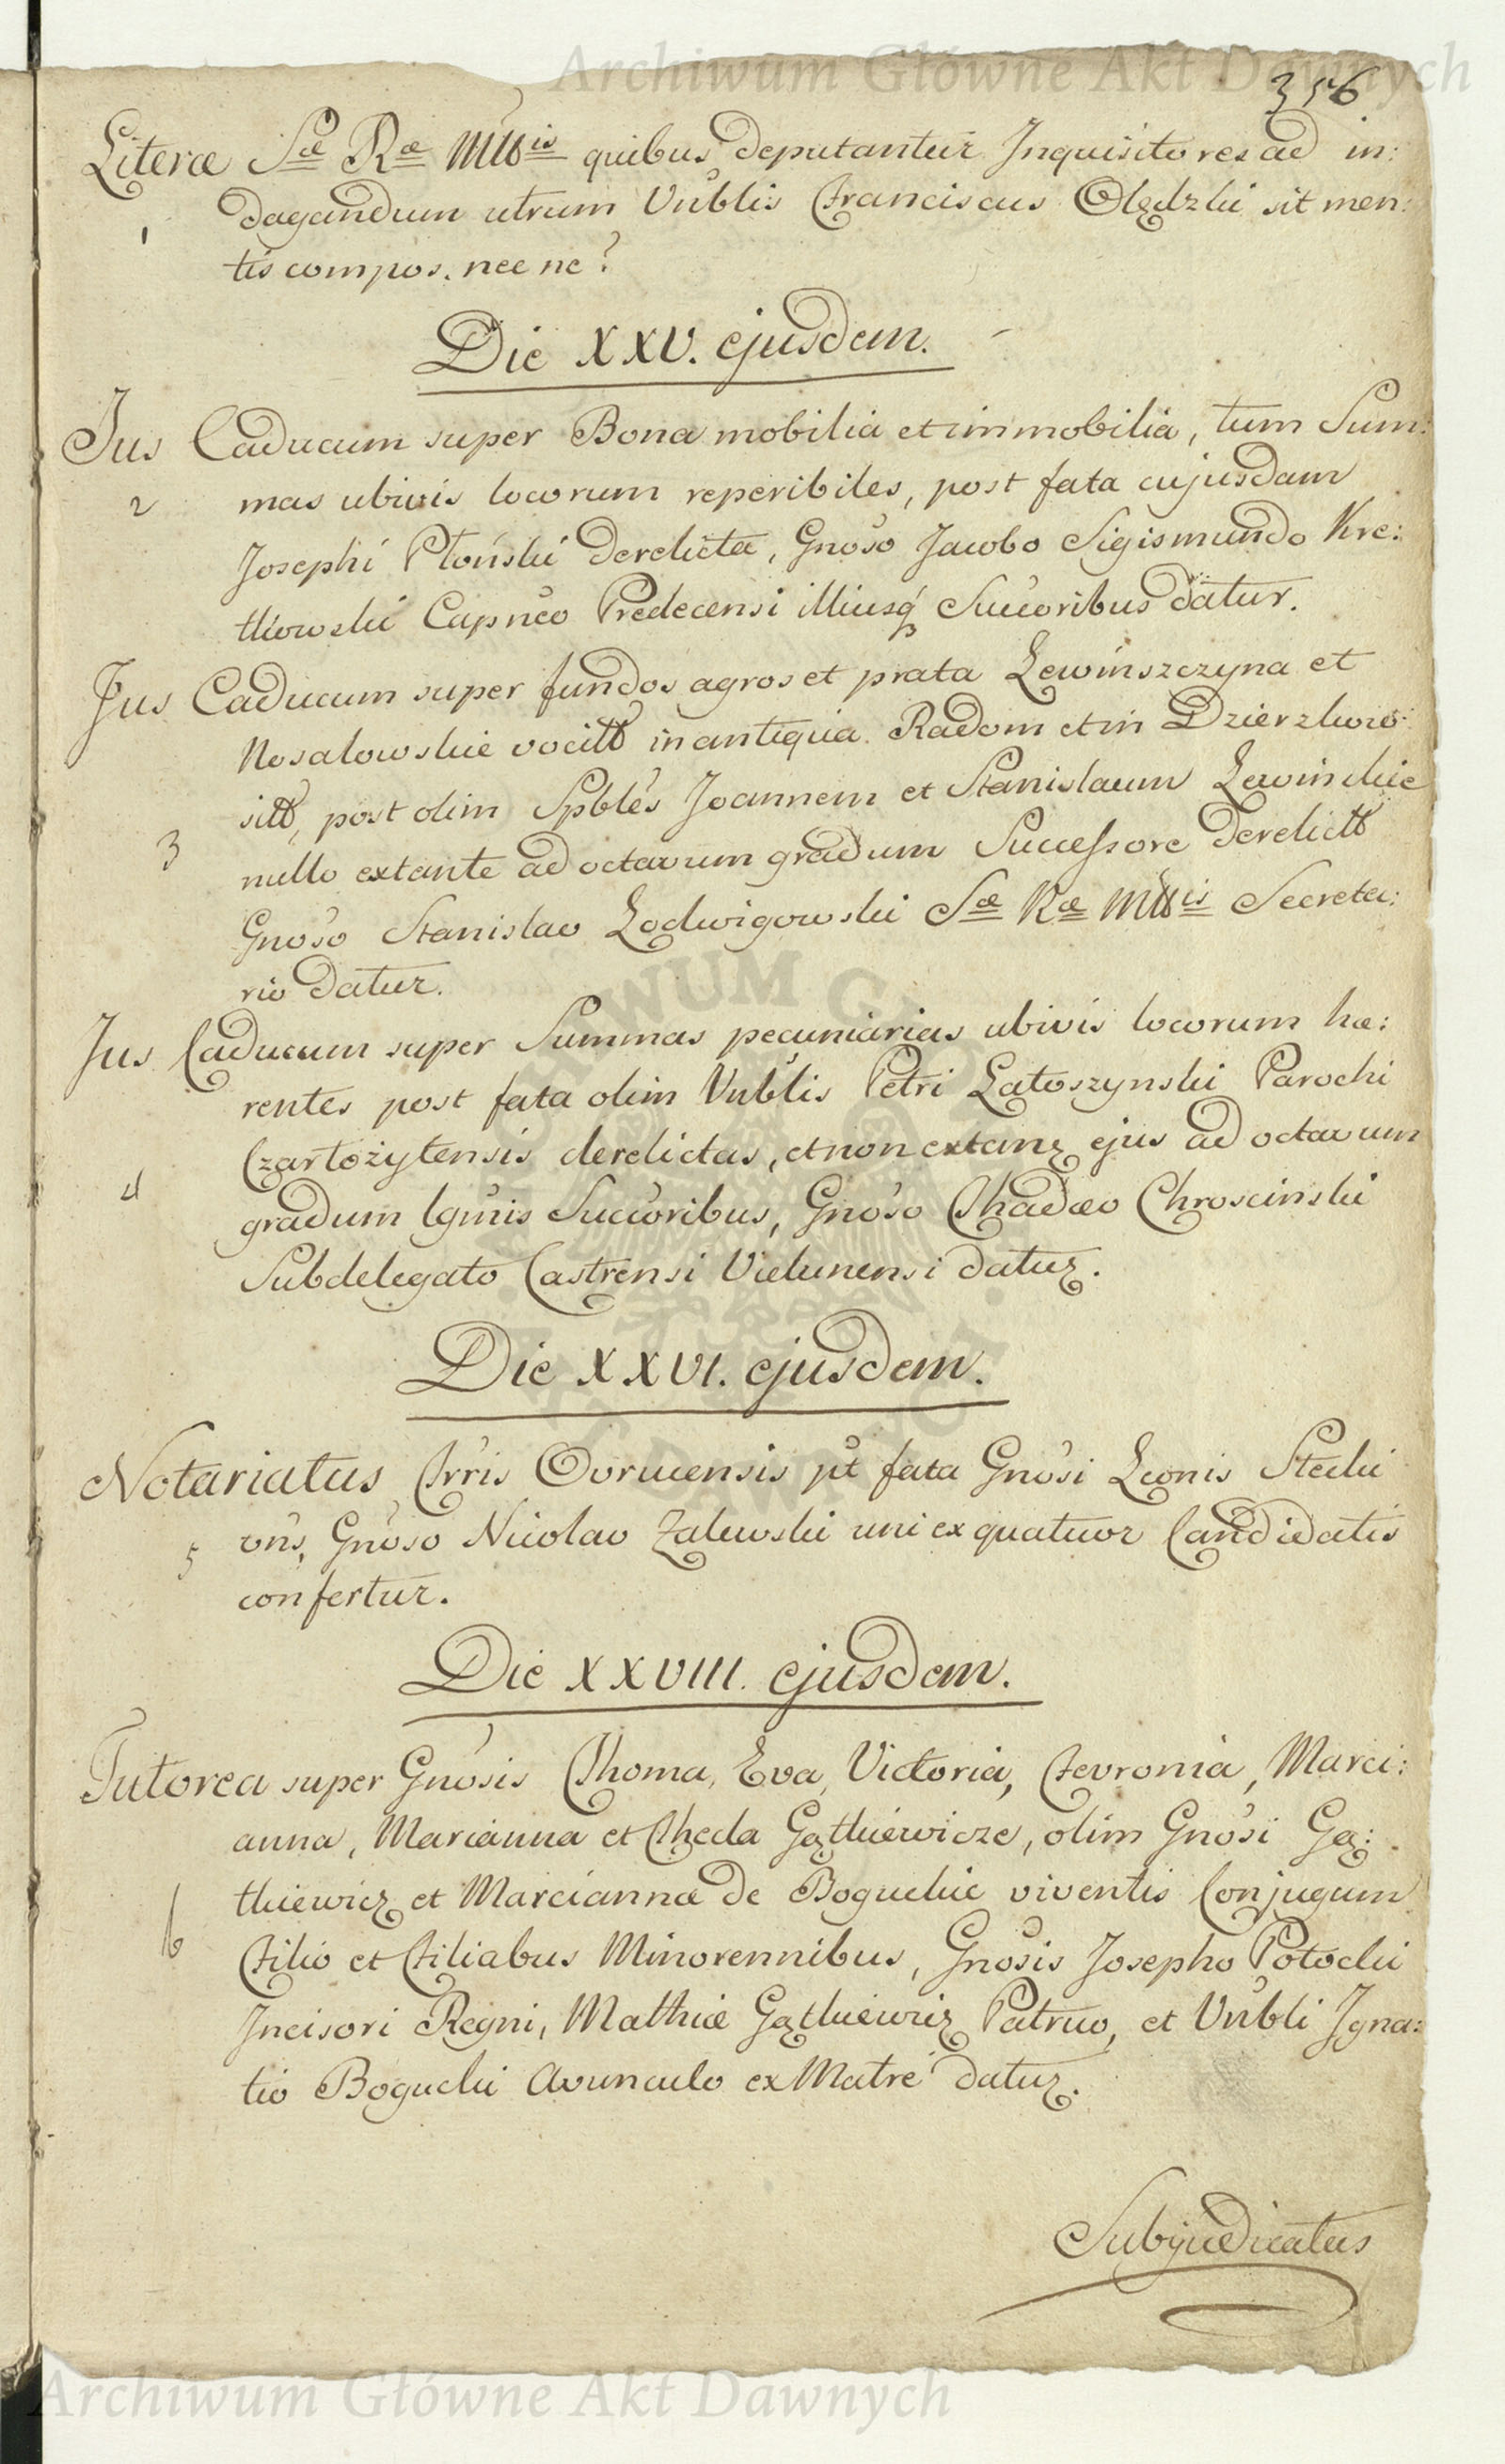 Archiwum Główne Akt Dawnych
356
Literæ Sæ Ræ Mttis quibus deputantur Inquisitores ad in:
1 dagandum utrum Vnblis Franciscus Olędzki sit men:
tis compos. nec ne?
Die XXV. ejusdem.
Jus Caducum super Bona mobilia et immobilia, tum Sum:
2 mas ubivis locorum reperibiles, post fata cujusdam
Josephi Płoński derelicta, Gnoso Jacobo Sigismundo Kre:
tkowski Capneo Predecensi illiusq Succoribus datur.
Jus Caducum super fundos agros et prata Lewinszczyna et
Nosalowskie vocitt in antiqua Radom et in Dzierzkow
sitt, post olim Spbles Joannem et Stanislaum Lewinskie
3 nullo extante ad octavum gradum Successore derelictt
Gnoso Stanislao Lodwigowski Sæ Ræ Mttis Secreta:
rio datur.
Jus Caducum super Summas pecuniarias ubivis locorum hæ:
rentes post fata olim Vnblis Petri Latoszynski Parochi
Czartożytensis derelictas, et non extanz ejus ad octavum
4 gradum lgmis Succoribus, Gnoso Thadæo Chroscinski
Subdelegato Castrensi Vielunensi datur.
Die XXVI. ejusdem.
Notariatus Trris Ovrucensis pt fata Gnosi Leonis Stecki
5 vns, Gnoso Nicolao Zalewski uni ex quatuor Candidatis
confertur.
Die XXVIII. ejusdem.
Tutorea super Gnosis Thoma, Eva, Victoria, Fevronia, Marci:
anna, Marianna et Theda Gątkiewicze, olim Gnosi Gą:
tkiewicz et Marciannæ de Boguckie viventis Conjugum
6 Filio et Filiabus Minorennibus, Gnosis Josepho Potocki
Incisori Regni, Mathiæ Gątkiewicz Patruo, et Vnbli Igna:
tio Bogucki Avunculo ex Matre datur.
Subjudicatus
Archiwum Główne Akt Dawnych